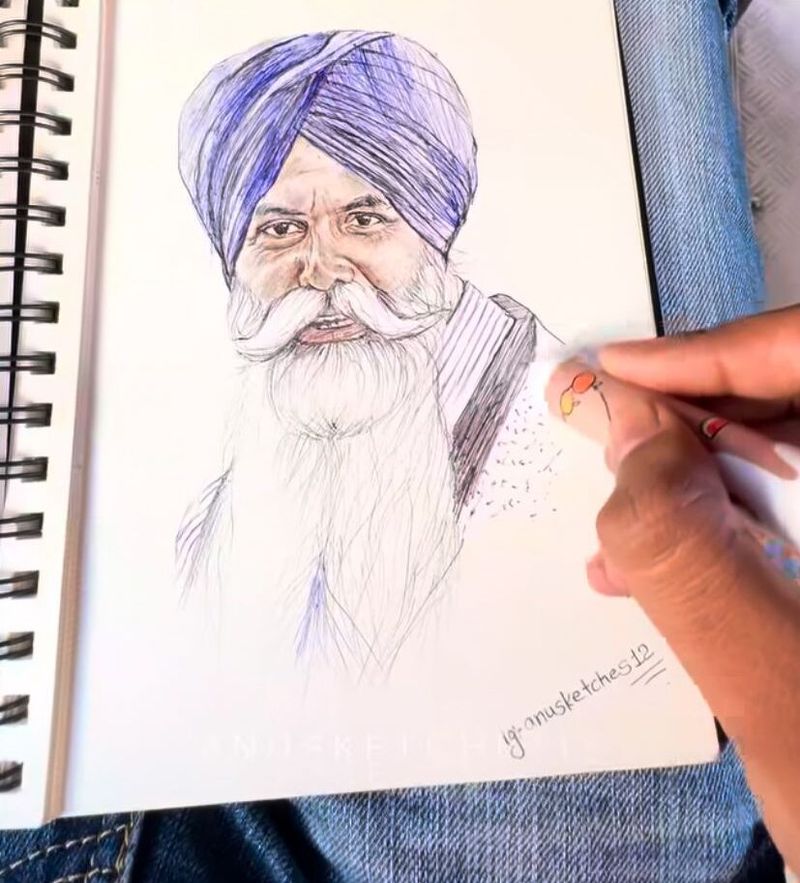 ig:-anusketches12
ANUSKETCHES12